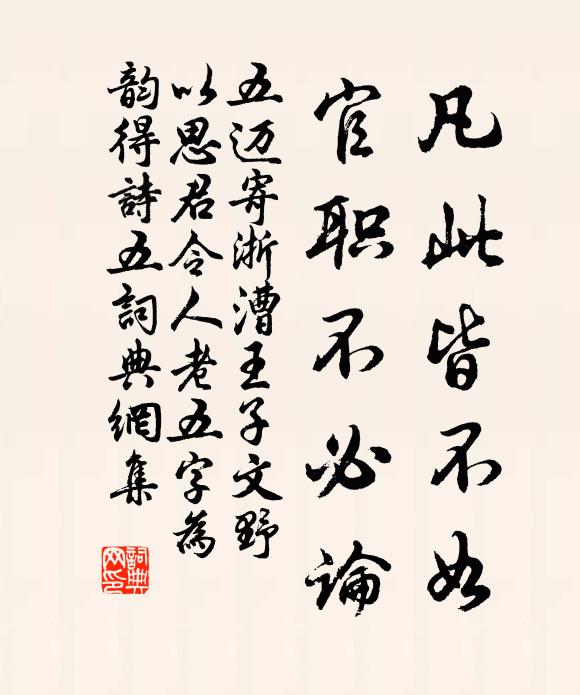 凡此皆不如
官职不必論
五迈寄浙漕王子文野
以思君令人老五字為
韵得詩五詞典網集
詞典网印